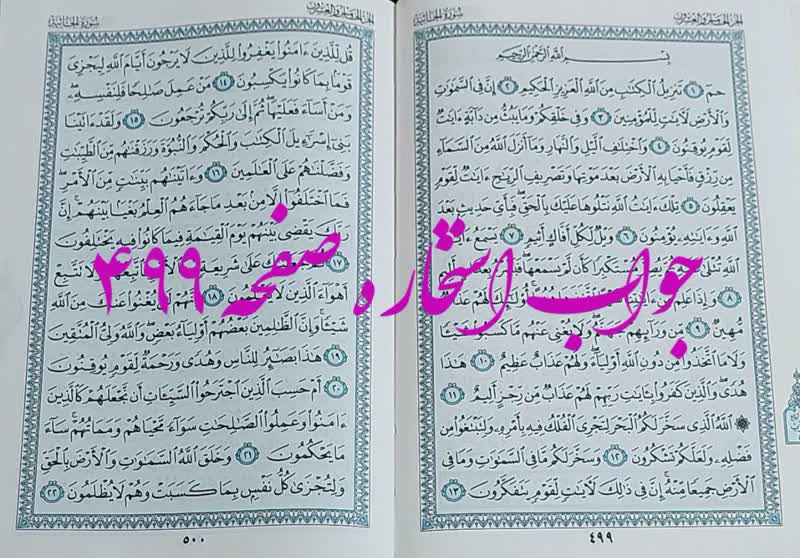 الجزء الخامس والعشرون
سورة الجاثية
بِسْمِ اللَّهِ الرَّحْمَٰنِ الرَّحِيمِ
حمٓ ١ تَنزِيلُ الْكِتَٰبِ مِنَ اللَّهِ الْعَزِيزِ الْحَكِيمِ ٢ إِنَّ فِي السَّمَٰوَٰتِ
وَالْأَرْضِ لَءَايَٰتٍ لِّلْمُؤْمِنِينَ ٣ وَفِي خَلْقِكُمْ وَمَا يَبُثُّ مِن دَآبَّةٍ ءَايَٰتٌ
لِّقَوْمٍ يُوقِنُونَ ٤ وَاخْتِلَٰفِ الَّيْلِ وَالنَّهَارِ وَمَآ أَنزَلَ اللَّهُ مِنَ السَّمَآءِ
مِن رِّزْقٍ فَأَحْيَا بِهِ الْأَرْضَ بَعْدَ مَوْتِهَا وَتَصْرِيفِ الرِّيَٰحِ ءَايَٰتٌ لِّقَوْمٍ
يَعْقِلُونَ ٥ تِلْكَ ءَايَٰتُ اللَّهِ نَتْلُوهَا عَلَيْكَ بِالْحَقِّ فَبِأَيِّ حَدِيثٍ بَعْدَ
اللَّهِ وَءَايَٰتِهِ يُؤْمِنُونَ ٦ وَيْلٌ لِّكُلِّ أَفَّاكٍ أَثِيمٍ ٧ يَسْمَعُ ءَايَٰتِ
اللَّهِ تُتْلَىٰ مُسْتَكْبِرًا كَأَن لَّمْ يَسْمَعْهَا أَلِيمٍ
٨ وَإِذَا عَلِمَ مِنْ أُو۟لَٰٓئِكَ لَهُمْ عَذَابٌ
مُّهِينٌ ٩ مِّن وَرَآئِهِمْ جَهَنَّمُ وَلَا يُغْنِي عَنْهُم مَّا كَسَبُوا۟ شَيْـًٔا
وَلَا مَا اتَّخَذُوا۟ مِن دُونِ اللَّهِ أَوْلِيَآءَ وَلَهُمْ عَذَابٌ عَظِيمٌ ١٠ هَٰذَا
هُدًى وَالَّذِينَ كَفَرُوا۟ بِـَٔايَٰتِ رَبِّهِمْ لَهُمْ عَذَابٌ مِّن رِّجْزٍ أَلِيمٌ ١١
اللَّهُ الَّذِي سَخَّرَ لَكُمُ الْبَحْرَ لِتَجْرِيَ الْفُلْكُ فِيهِ بِأَمْرِهِ وَلِتَبْتَغُوا۟ مِن
فَضْلِهِ وَلَعَلَّكُمْ تَشْكُرُونَ ١٢ وَسَخَّرَ لَكُم مَّا فِي السَّمَٰوَٰتِ وَمَا فِي
الْأَرْضِ جَمِيعًا مِّنْهُ إِنَّ فِي ذَٰلِكَ لَءَايَٰتٍ لِّقَوْمٍ يَتَفَكَّرُونَ ١٣
٤٩٩
الجزء الخامس والعشرون
سورة الجاثية
قُل لِّلَّذِينَ ءَامَنُوا۟ يَغْفِرُوا۟ لِلَّذِينَ لَا يَرْجُونَ أَيَّامَ اللَّهِ لِيَجْزِيَ
قَوْمًۢا بِمَا كَانُوا۟ يَكْسِبُونَ ١٤ مَنْ عَمِلَ صَٰلِحًا فَلِنَفْسِهِ
وَمَنْ أَسَآءَ فَعَلَيْهَا ثُمَّ إِلَىٰ رَبِّكُمْ تُرْجَعُونَ ١٥ وَلَقَدْ ءَاتَيْنَا
بَنِيٓ إِسْرَٰٓءِيلَ الْكِتَٰبَ وَالْحُكْمَ وَالنُّبُوَّةَ وَرَزَقْنَٰهُم مِّنَ الطَّيِّبَٰتِ
وَفَضَّلْنَٰهُمْ عَلَى الْعَٰلَمِينَ ١٦ وَءَاتَيْنَٰهُم بَيِّنَٰتٍ مِّنَ الْأَمْرِ
فَمَا اخْتَلَفُوٓا۟ إِلَّا مِنۢ بَعْدِ مَا جَآءَهُمُ الْعِلْمُ بَغْيًۢا بَيْنَهُمْ إِنَّ
رَبَّكَ يَقْضِي بَيْنَهُمْ يَوْمَ الْقِيَٰمَةِ فِيمَا كَانُوا۟ فِيهِ يَخْتَلِفُونَ
١٧ عَلَىٰ شَرِيعَةٍ وَلَا تَتَّبِعْ
أَهْوَآءَ الَّذِينَ لَا يَعْلَمُونَ ١٨ إِنَّهُمْ لَن يُغْنُوا۟ عَنكَ مِنَ اللَّهِ
شَيْـًٔا وَإِنَّ الظَّٰلِمِينَ بَعْضُهُمْ أَوْلِيَآءُ بَعْضٍ وَاللَّهُ وَلِيُّ الْمُتَّقِينَ
١٩ هَٰذَا بَصَٰٓئِرُ لِلنَّاسِ وَهُدًى وَرَحْمَةٌ لِّقَوْمٍ يُوقِنُونَ
٢٠ أَمْ حَسِبَ الَّذِينَ اجْتَرَحُوا۟ السَّيِّـَٔاتِ أَن نَّجْعَلَهُمْ كَالَّذِينَ
ءَامَنُوا۟ وَعَمِلُوا۟ الصَّٰلِحَٰتِ سَوَآءً مَّحْيَاهُمْ وَمَمَاتُهُمْ سَآءَ
مَا يَحْكُمُونَ ٢١ وَخَلَقَ اللَّهُ السَّمَٰوَٰتِ وَالْأَرْضَ بِالْحَقِّ
وَلِتُجْزَىٰ كُلُّ نَفْسٍۭ بِمَا كَسَبَتْ وَهُمْ لَا يُظْلَمُونَ ٢٢
٥٠٠
جواب استخاره صفحه ۴۹۹